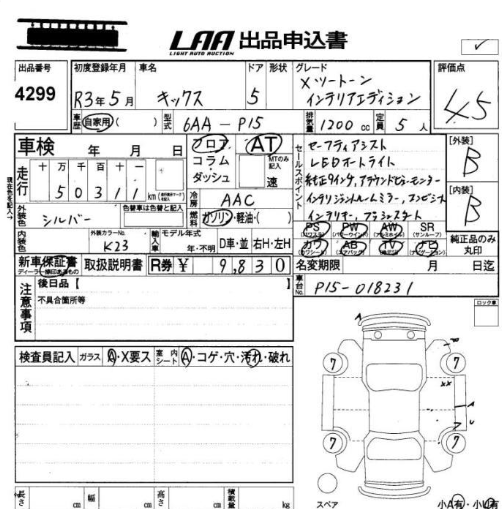 LAA 出品申込書
LIGHT AUTO AUCTION
出品番号 初度登録年月 車名 ドア 形状 グレード 評価点
4299 R3年5月 キックス 5 X ツートーン
インテリアエディション 4.5
車歴 自家用( ) 型式 6AA - P15 排気量 1200 cc 定員 5人
車検 年 月 日 フロア コラム ダッシュ AT MTのみ記入 速
走行 十 万 千 百 十 一
5 0 3 1 1 km
冷房 AAC
外装色 シルバー 色替車は色替と記入 燃料 ガソリン・軽油・( )
内装色 外装カラーNo. K23 輸入車 モデル年式 年・不明 D車・並 右H・左H
セールスポイント セーフティアシスト
LEDオートライト
純正9インチ、アラウンドビューモニター
インテリジェントルームミラー、コンビシート
インテリキー、プッシュスタート
PS PW AW SR
(パワステ) (パワーウインド) (アルミホイル) (サンルーフ)
カワ AB TV ナビ
(カワシート) (エアバック) (純正) (ナビゲーション)
[外装]
B
[内装]
B
純正品のみ丸印
新車保証書 取扱説明書 R券 ¥ 9,830 名変期限 月 日迄
ディーラー捺印あるもの
注意事項 後日品 [ ]
不具合箇所等
車台No. P15-018231
ロック車
検査員記入 ガラス A・X要ス 室内シート A・コゲ・穴・汚れ・破れ
7 7
xx
A
7 7
長さ cm 幅 cm 高さ cm 積載量 kg
スペア 小A有・小U有